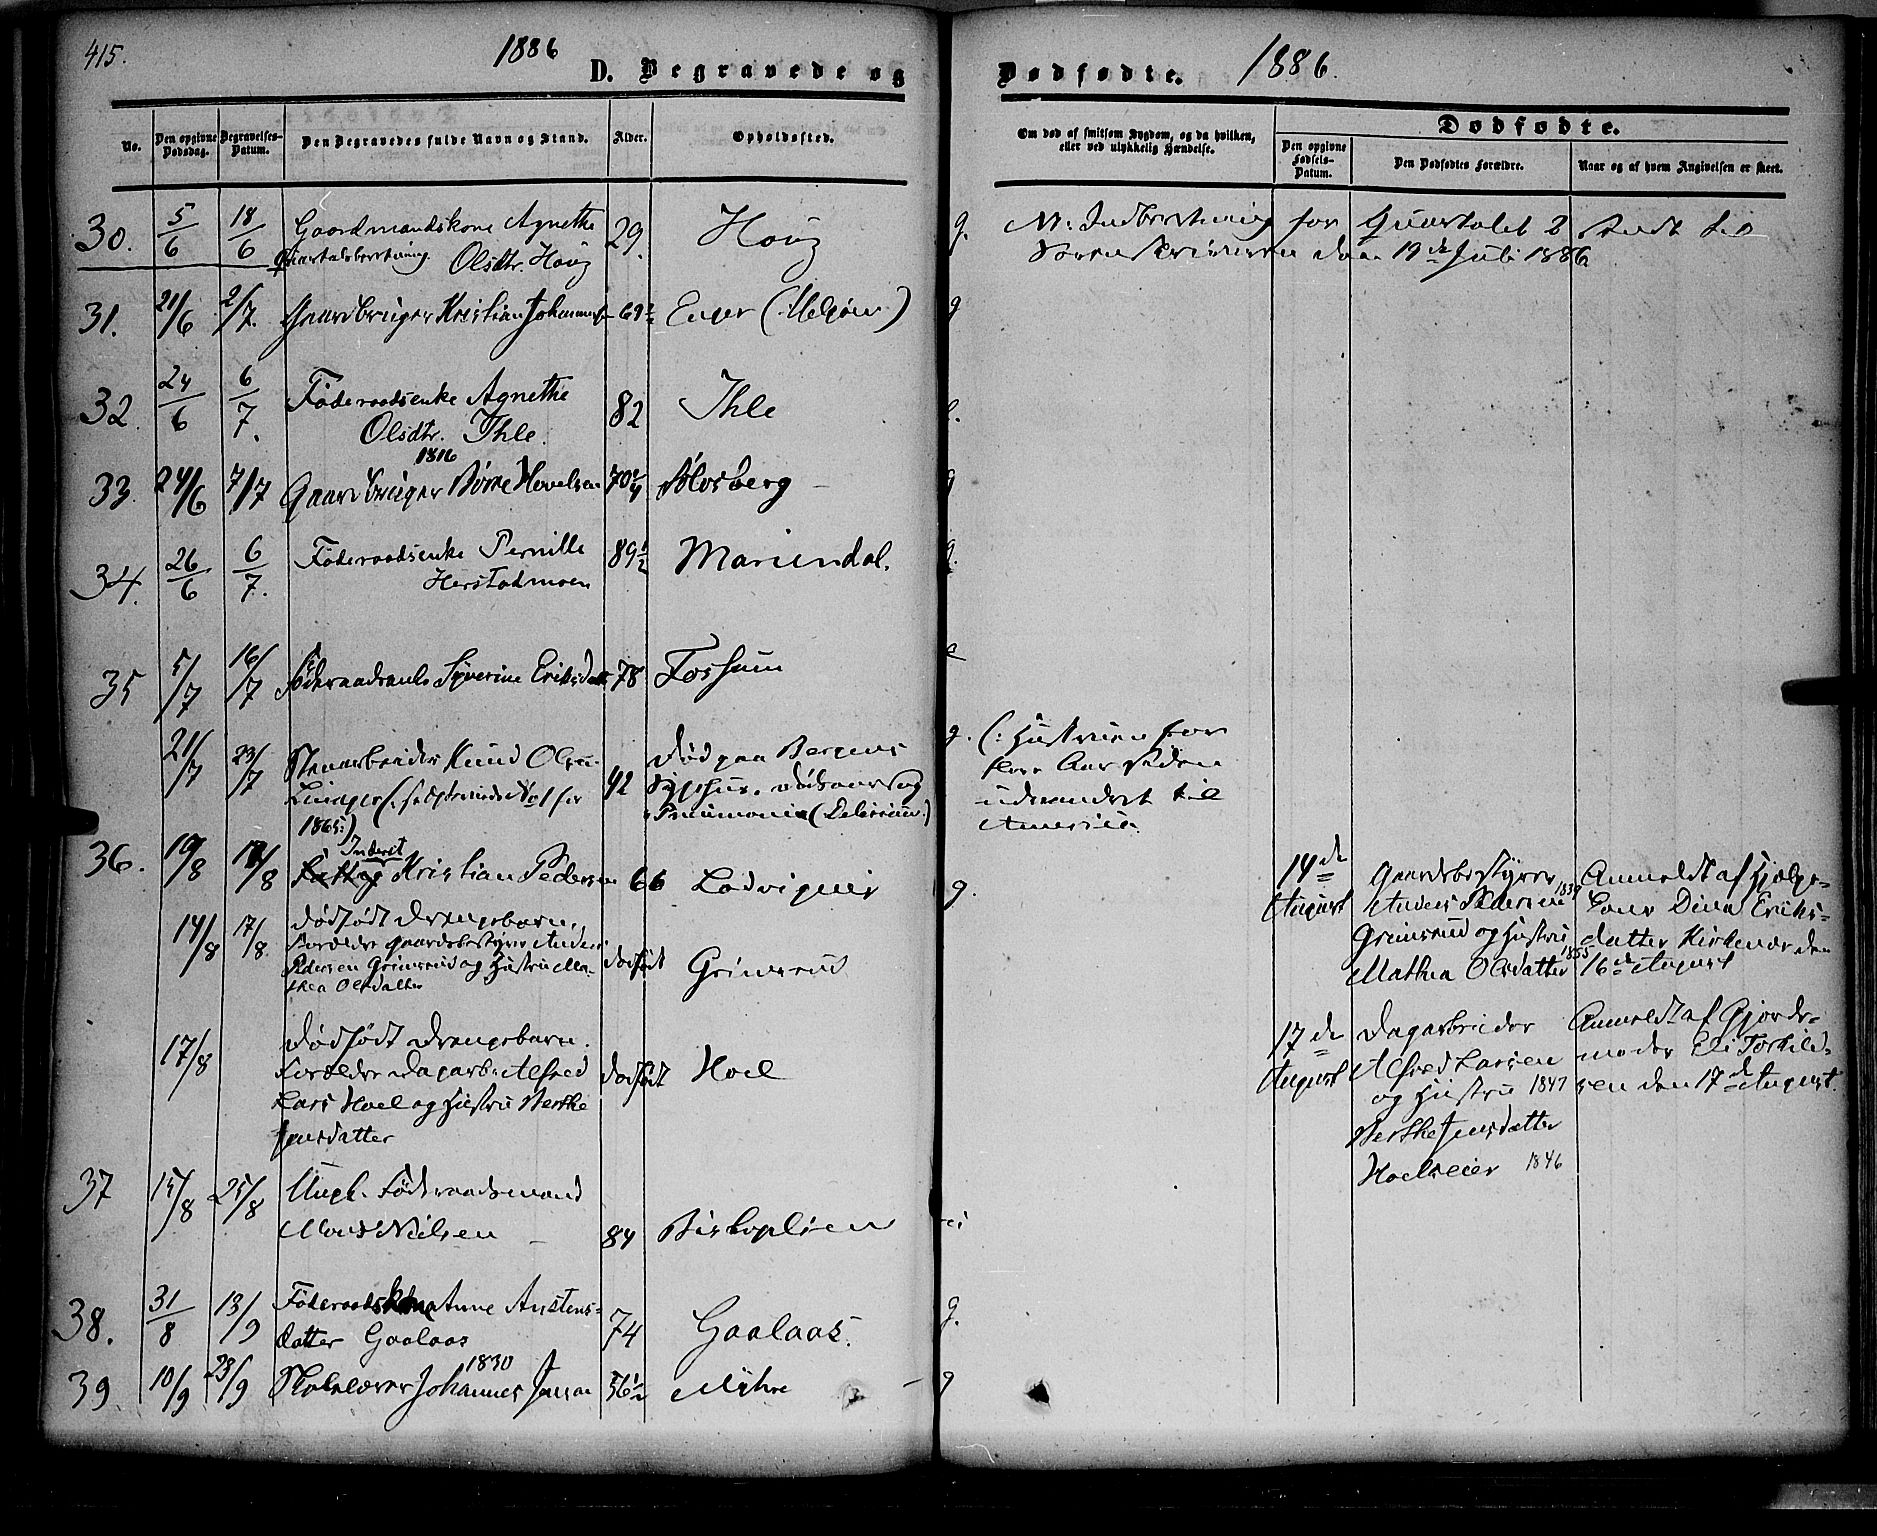 415.
1886
D. Begravede og
No.
Den opgivne Dødsdag.
Begravelses-Datum.
Den Begravedes fulde Navn og Stand.
Alder.
Opholdssted.
30. 5/6 18/6 Gaardmandskone Agnethe 29. Houg g.
Kvartalsberetning. Olsdtr. Houg
31. 21/6 2/7. Gaardbruger Kristian Johannes 69½ Enger g
32. 24/6 6/7. Föderaadsenke Agnethe 82 Ihle
Olsdtr. Ihle.
1816
33. 24/6 7/7 Gaardbruger Børre Hovelsen 70¼ Blosberg g
34. 26/6 6/7. Föderaadsenke Pernille 89½ Mariendal. g.
Herstadmoen
35 5/7 16/7 Föderaadsenke Syverine Eriksdatter 78 Fossum
21/7 23/7 Stenarbeider Knud Olsen død paa Bergens g.
42 Sygehus. dødsaarsag
1865:) Pneumonie (Delirium.)
36. 10/8 17/8 Inderst
Kristian Pedersen 66 Lodvigeier g.
14/8 17/8. Dødfødt Drengebarn.
Forældre Gaardsbestyrer Anders
Pedersen Grimsrud og Hustru Ma- dødfødt Grimsrud
thea Olsdatter
17/8 Dødfødt Drengebarn.
Forældre Dagarb. Alfred dødfødt Hoel
Lars Hoel og Hustru Berthe
Jensdatter
37 15/8 25/8 Ungk. Föderaadsmand
Mons Nielsen 84 Biskoplien
38. 31/8 13/9 Föderaadskone Anne Austens- 74 Gaalaas. g.
datter Gaalaas
1830
39 10/9 23/9 Skolelærer Johannes Jensen 56½ Myhre g
Dødfødte. 1886.
Om død af smitsom Sygdom, og da hvilken,
eller ved ulykkelig Hændelse.
Dødfødte.
Den opgivne Fødsels-Datum.
Den Dødfødtes Forældre.
Naar og af hvem Angivelsen er skeet.
N: Indberetning for Quartalet 2 sendt til
Sorenskriveren den 19de Juli 1886
(: Hustruen for
flere Aar siden
udvandret til
Amerika.
14de
August
Gaardsbestyrer
Anders Pedersen 1839
Grimsrud og Hustru
Mathea Olsdatter 1855
Anmeldt af Hjælpe-
kone Dina Eriks-
datter Kirkenær den
16de August
17de
August
Dagarbeider
Alfred Larsen
og Hustru 1847
Berthe Jensdatter
Hoelseier 1846
Anmeldt af Gjorde-
moder Eli Torkild-
sen den 17de August.